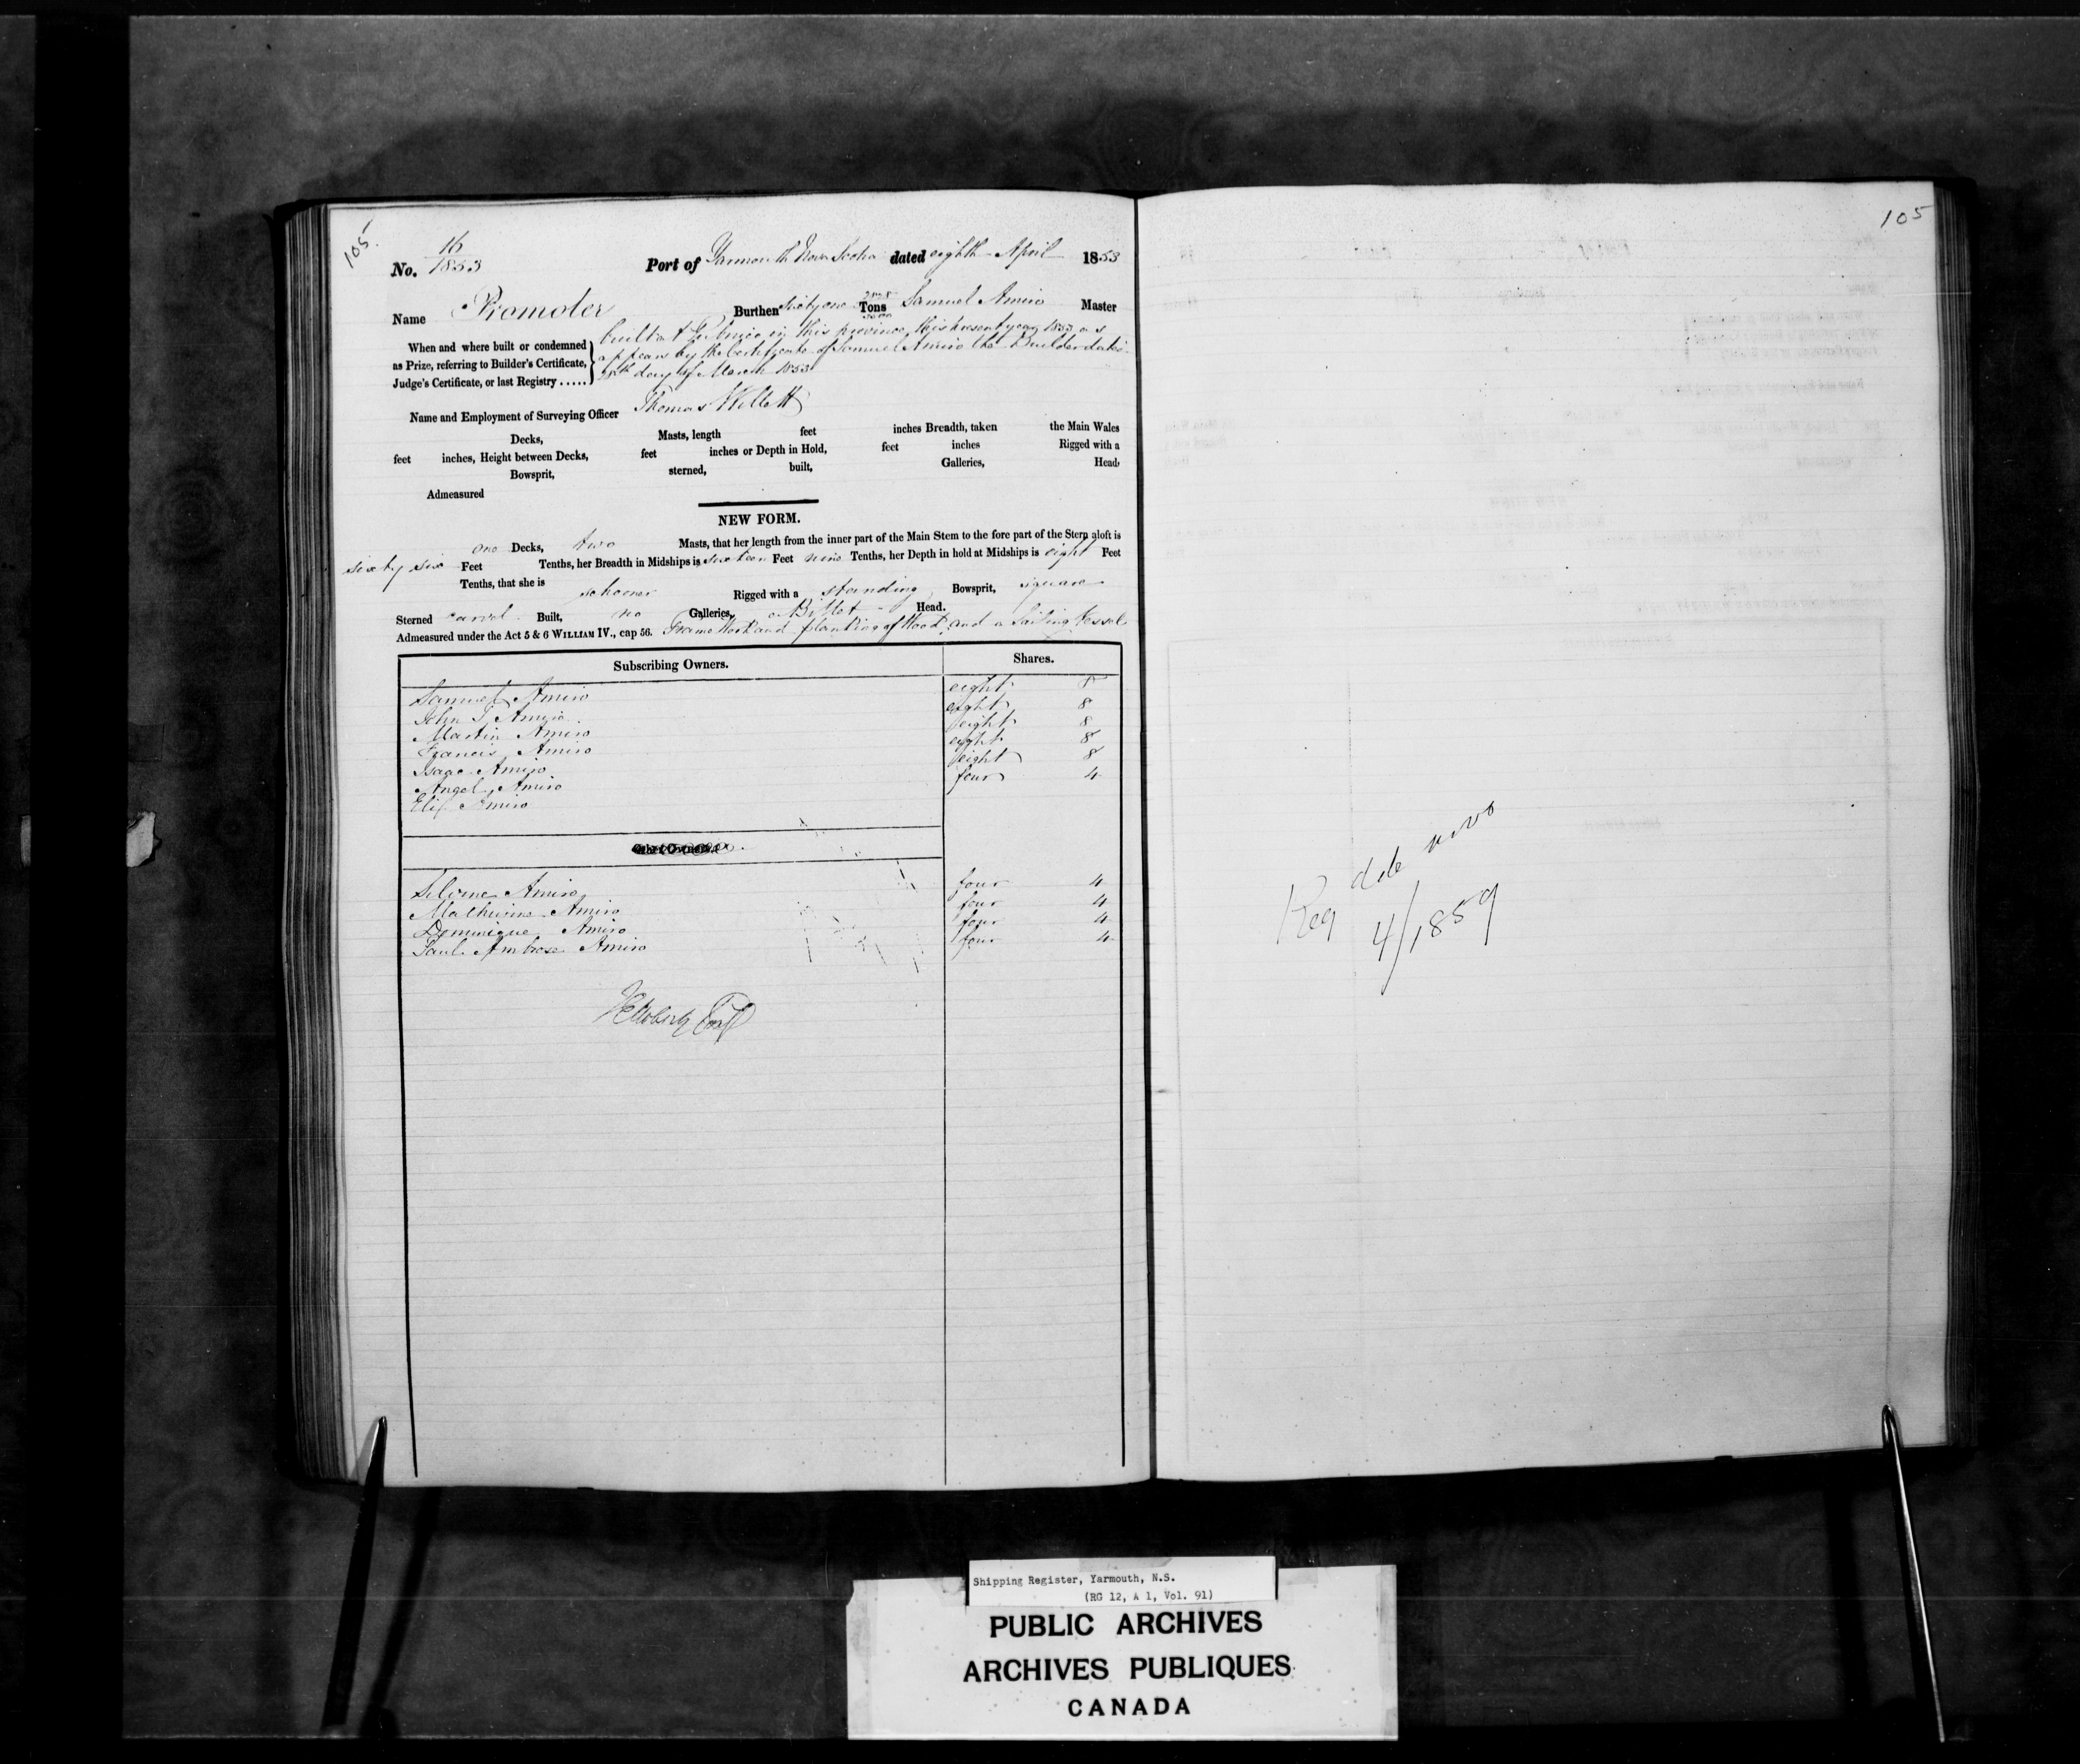 105
105
No. 16/1853 Port of Yarmouth Nova Scotia dated eighth April 1853
Name Promoter Burthen Sixty one Tons Samuel Amiro Master
When and where built or condemned
as Prize, referring to Builder's Certificate,
Judge's Certificate, or last Registry .....
built at Pubnico in this province this present year 1853 as
appears by the Certificate of Samuel Amiro the Builder dated
28th day of March 1853
Name and Employment of Surveying Officer Thomas Willett
Decks, Masts, length feet inches Breadth, taken the Main Wales
feet inches, Height between Decks, feet inches or Depth in Hold, feet inches Rigged with a
Bowsprit, sterned, built, Galleries, Head,
Admeasured
NEW FORM.
one Decks, two Masts, that her length from the inner part of the Main Stem to the fore part of the Stern aloft is
sixty six Feet Tenths, her Breadth in Midships is sixteen Feet nine Tenths, her Depth in hold at Midships is eight Feet
Tenths, that she is schooner Rigged with a standing Bowsprit, square
Sterned carvel Built, no Galleries, a Billet Head.
Admeasured under the Act 5 & 6 WILLIAM IV., cap 56. Frame Work and planking of Wood and a Sailing Vessel
Subscribing Owners. Shares.
Samuel Amiro eight 8
John T Amiro eight 8
Martin Amiro eight 8
Francis Amiro eight 8
Isaac Amiro eight 8
Angel Amiro four 4
Eli Amiro
Silvine Amiro four 4
Mathurine Amiro four 4
Dominique Amiro four 4
Paul Ambrose Amiro four 4
Reg de novo
4/1859
Shipping Register, Yarmouth, N.S.
(RG 12, A 1, Vol. 91)
PUBLIC ARCHIVES
ARCHIVES PUBLIQUES
CANADA